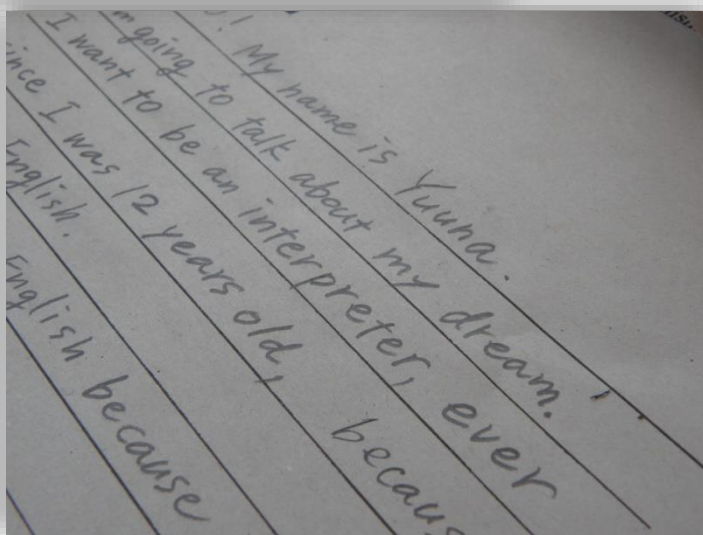 ! My name is Yuuna.
m going to talk about my dream.
I want to be an interpreter, ever
ince I was 12 years old, becaus
English.
English because